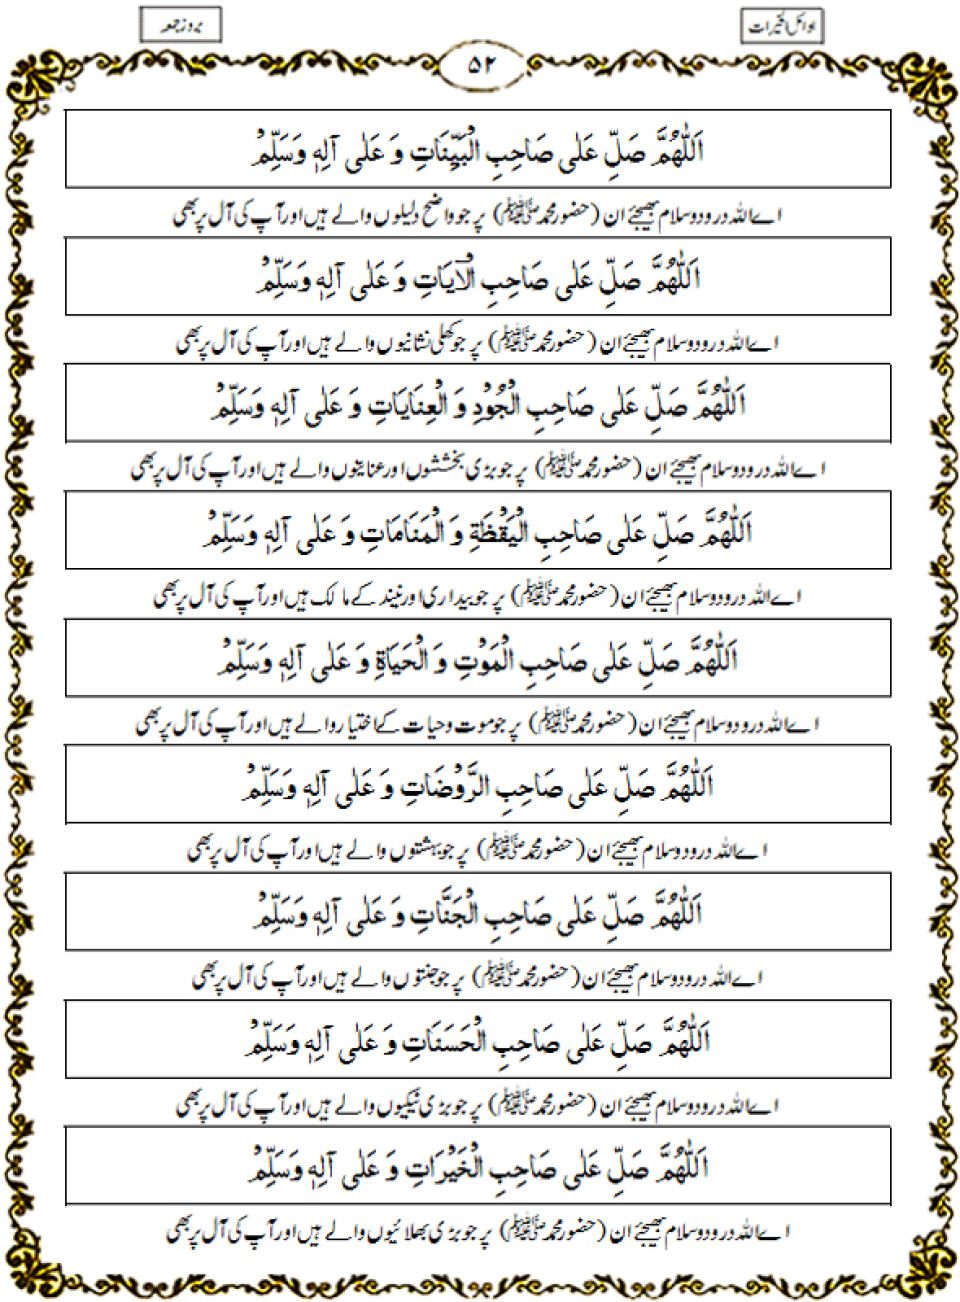 اوائل الخیرات
بروز جمعہ
۵۲
اَللّٰهُمَّ صَلِّ عَلٰى صَاحِبِ الْبَيِّنَاتِ وَ عَلٰى آلِهٖ وَسَلِّمْ
اے اللہ درود و سلام بھیجئے ان (حضور محمد ﷺ) پر جو واضح دلیلوں والے ہیں اور آپ کی آل پر بھی
اَللّٰهُمَّ صَلِّ عَلٰى صَاحِبِ الْاٰيَاتِ وَ عَلٰى آلِهٖ وَسَلِّمْ
اے اللہ درود و سلام بھیجئے ان (حضور محمد ﷺ) پر جو کھلی نشانیوں والے ہیں اور آپ کی آل پر بھی
اَللّٰهُمَّ صَلِّ عَلٰى صَاحِبِ الْجُوْدِ وَ الْعِنَايَاتِ وَ عَلٰى آلِهٖ وَسَلِّمْ
اے اللہ درود و سلام بھیجئے ان (حضور محمد ﷺ) پر جو بڑی بخششوں اور عنایتوں والے ہیں اور آپ کی آل پر بھی
اَللّٰهُمَّ صَلِّ عَلٰى صَاحِبِ الْيَقْظَةِ وَ الْمَنَامَاتِ وَ عَلٰى آلِهٖ وَسَلِّمْ
اے اللہ درود و سلام بھیجئے ان (حضور محمد ﷺ) پر جو بیداری اور نیند کے مالک ہیں اور آپ کی آل پر بھی
اَللّٰهُمَّ صَلِّ عَلٰى صَاحِبِ الْمَوْتِ وَ الْحَيَاةِ وَ عَلٰى آلِهٖ وَسَلِّمْ
اے اللہ درود و سلام بھیجئے ان (حضور محمد ﷺ) پر جو موت و حیات کے اختیار والے ہیں اور آپ کی آل پر بھی
اَللّٰهُمَّ صَلِّ عَلٰى صَاحِبِ الرَّوْضَاتِ وَ عَلٰى آلِهٖ وَسَلِّمْ
اے اللہ درود و سلام بھیجئے ان (حضور محمد ﷺ) پر جو بہشتوں والے ہیں اور آپ کی آل پر بھی
اَللّٰهُمَّ صَلِّ عَلٰى صَاحِبِ الْجَنَّاتِ وَ عَلٰى آلِهٖ وَسَلِّمْ
اے اللہ درود و سلام بھیجئے ان (حضور محمد ﷺ) پر جو جنتوں والے ہیں اور آپ کی آل پر بھی
اَللّٰهُمَّ صَلِّ عَلٰى صَاحِبِ الْحَسَنَاتِ وَ عَلٰى آلِهٖ وَسَلِّمْ
اے اللہ درود و سلام بھیجئے ان (حضور محمد ﷺ) پر جو بڑی نیکیوں والے ہیں اور آپ کی آل پر بھی
اَللّٰهُمَّ صَلِّ عَلٰى صَاحِبِ الْخَيْرَاتِ وَ عَلٰى آلِهٖ وَسَلِّمْ
اے اللہ درود و سلام بھیجئے ان (حضور محمد ﷺ) پر جو بڑی بھلائیوں والے ہیں اور آپ کی آل پر بھی